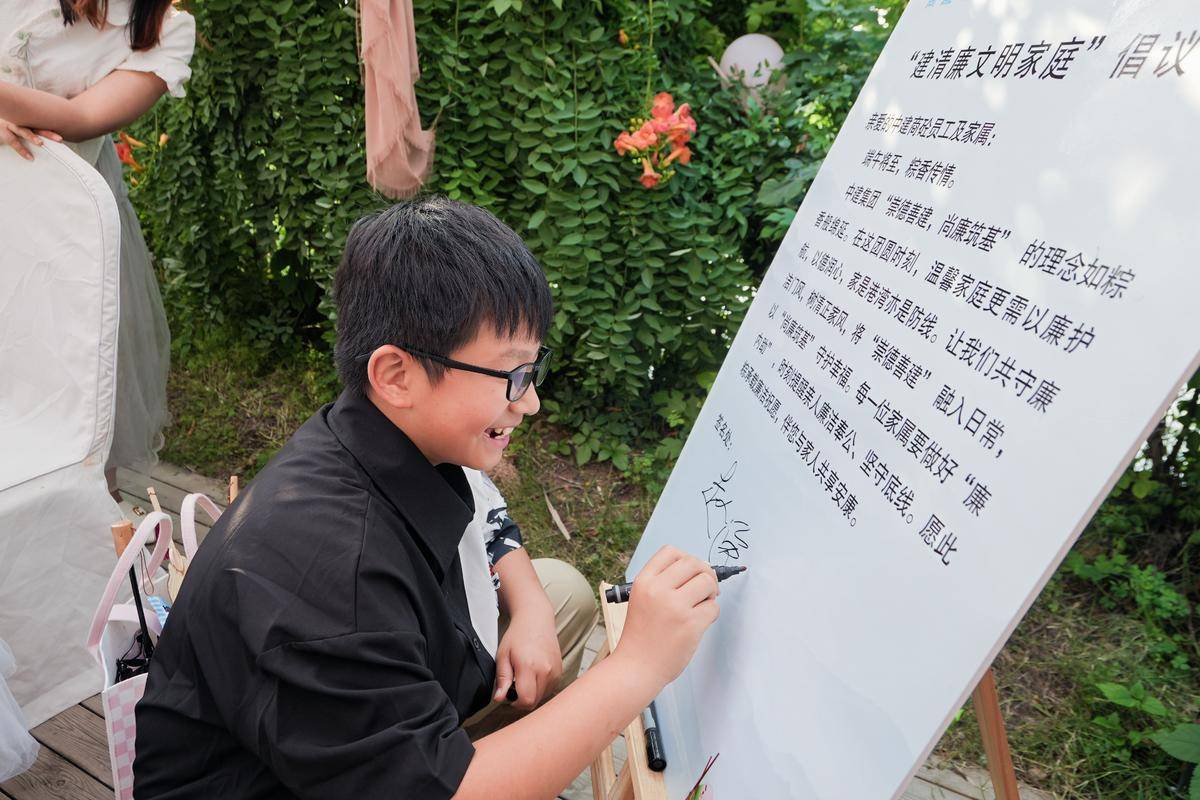 “建清廉文明家庭”倡议
亲爱的中建商砼员工及家属：
端午将至，粽香传情。
中建集团“崇德善建，尚廉筑基”的理念如粽
香般绵延。在这团圆时刻，温馨家庭更需以廉护
航，以德润心，家是港湾亦是防线。让我们共守廉
洁门风，树清正家风，将“崇德善建”融入日常，
以“尚廉筑基”守护幸福。每一位家属要做好“廉
内助”，时刻提醒亲人廉洁奉公，坚守底线。愿此
粽满载廉洁祝愿，伴您与家人共享安康。
签名处：